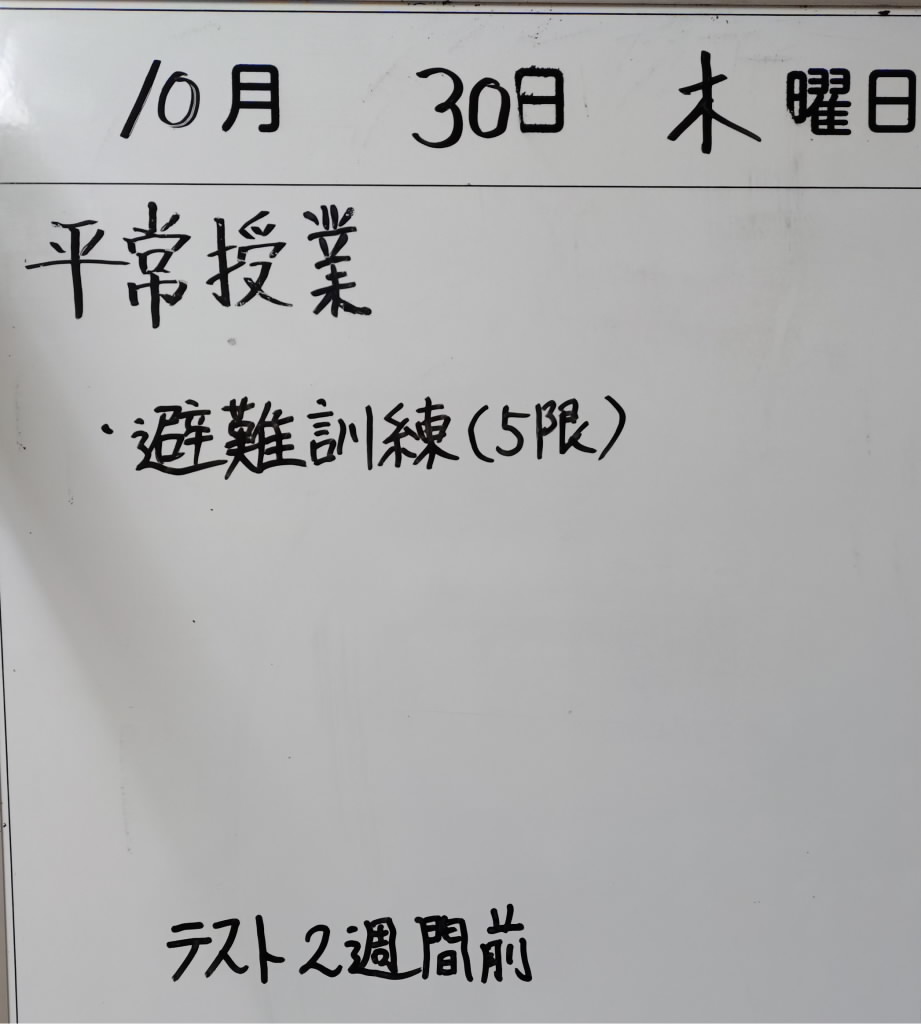 10月 30日 木曜日
平常授業
・避難訓練(5限)
テスト2週間前